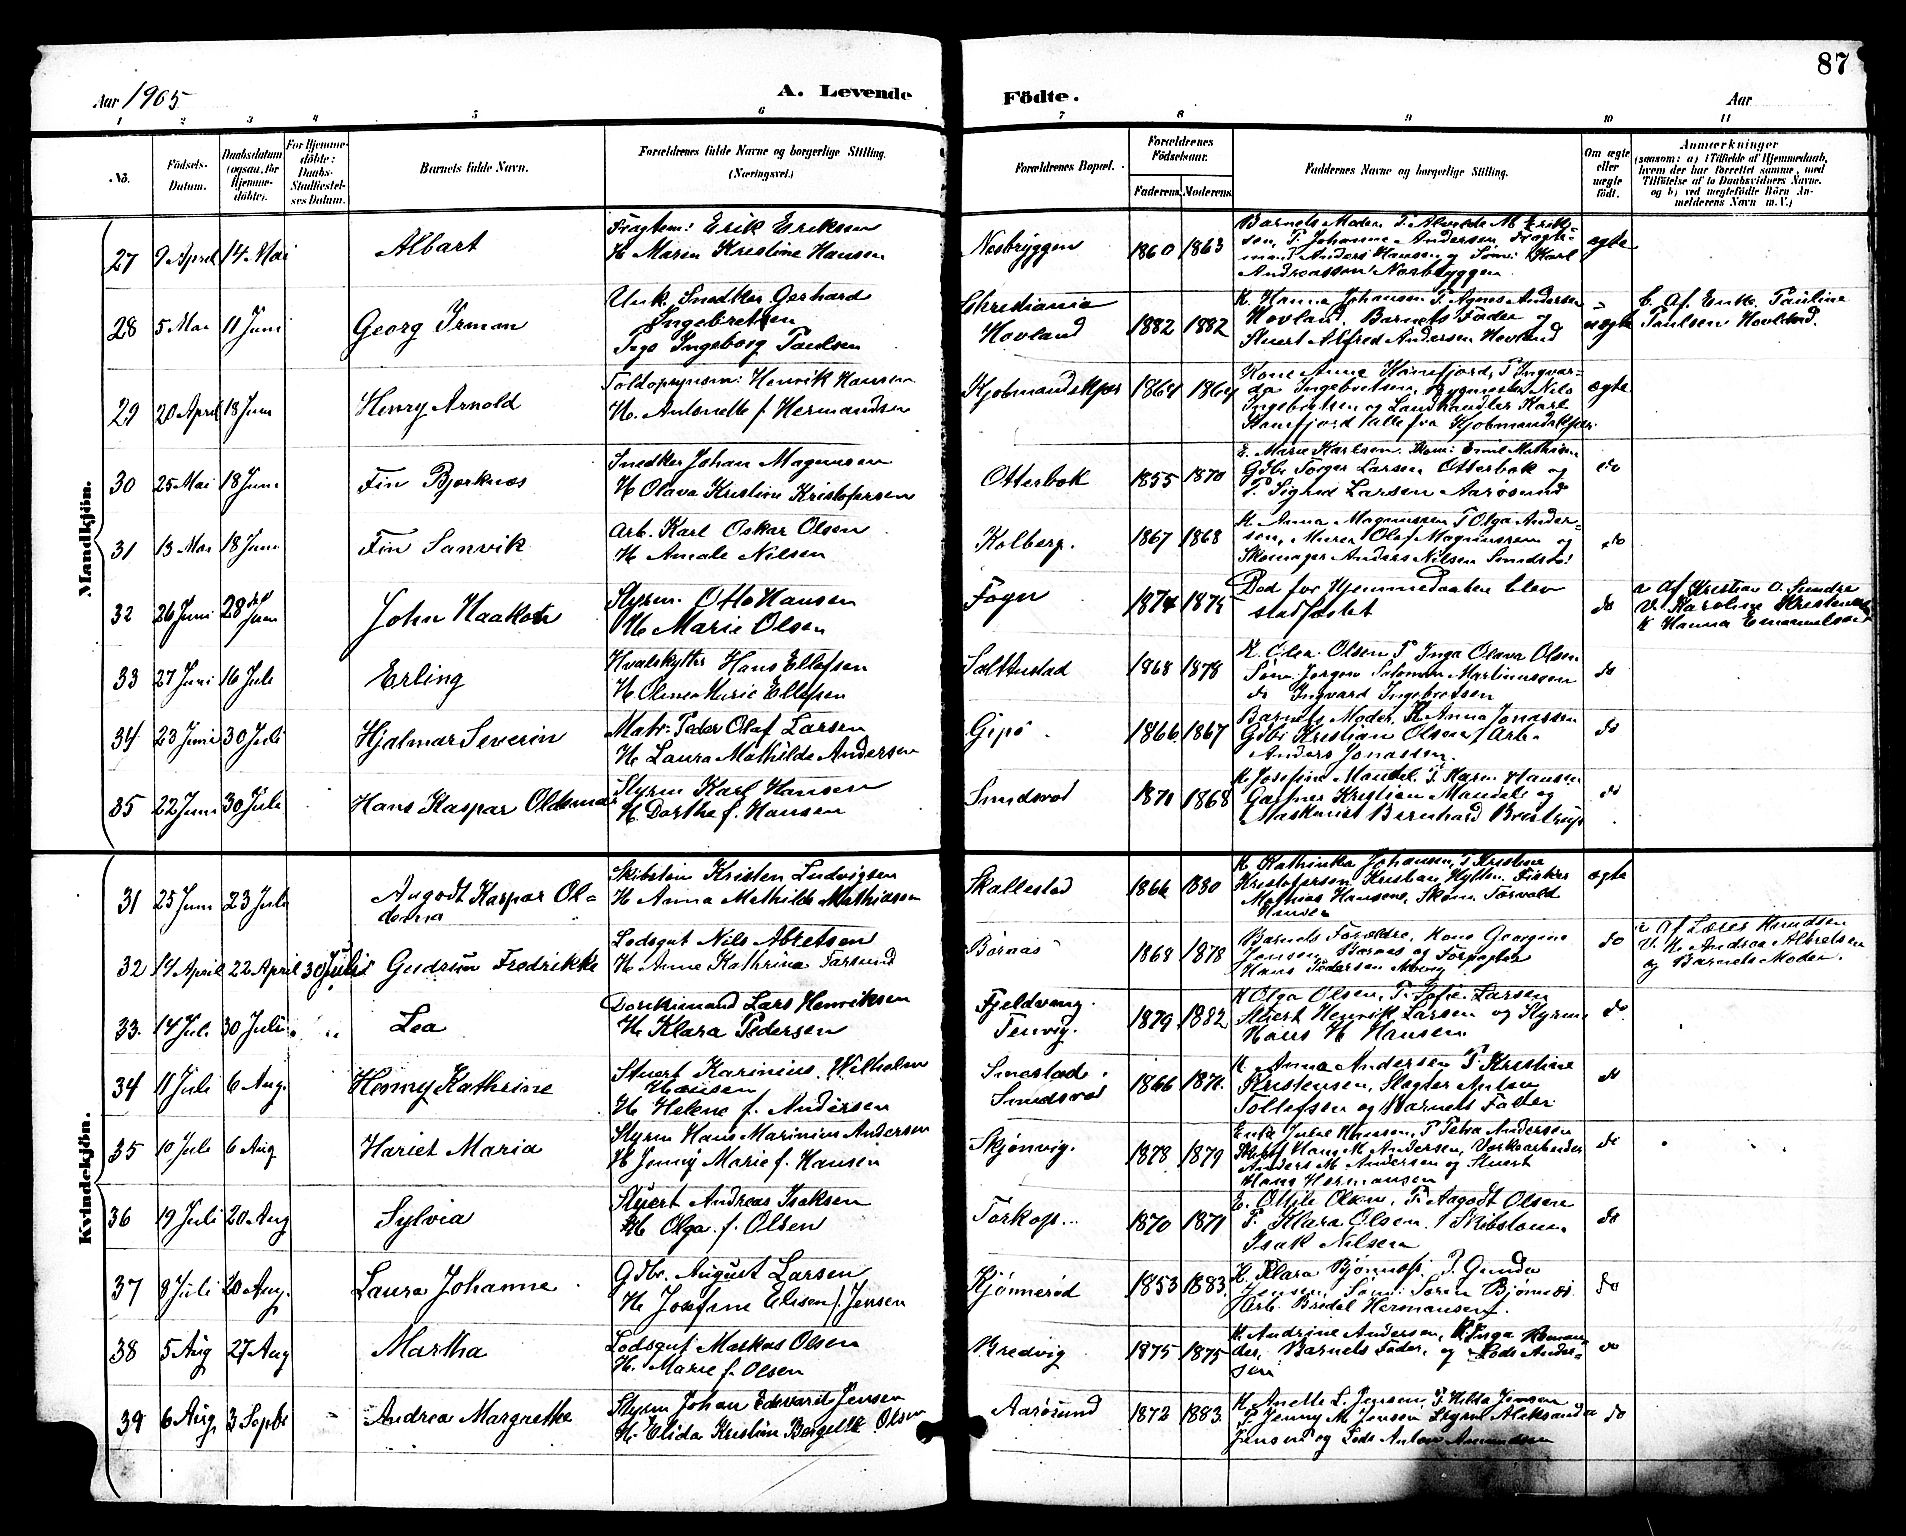 87
Aar 1905
A. Levende
Födte.
Aar
1 2 3 4 5 6 7 8 9 10 11
No.
Födsels-Datum.
Daabsdatum (ogsaa for Hjemme-döbte).
For Hjemme-döbte: Daabs-Stadfæstel-ses Datum.
Barnets fulde Navn.
Forældrenes fulde Navne og borgerlige Stilling. (Næringsvei.)
Forældrenes Bopæl.
Forældrenes Födselsaar.
Faderens. Moderens.
Faddernes Navne og borgerlige Stilling.
Om ægte eller uægte födt.
Anmærkninger
(saasom: a) i Tilfælde af Hjemmedaab, hvem der har forrettet samme, med Tilföielse af to Daabsvidners Navne, og b) ved uægtefödte Börn An-melderens Navn m. V.)
Mandkjön.
27 9 April 14 Mai Albart
Fragtem: Erik Eriksen
H. Maren Kristine Hansen
Nesbryggen 1860 1863
Barnets Moder, P. Alvilde M. Erik-
sen, P. Johanne Andersen, Fragte-
mand Anders Hansen og Søm: Karl
Andreassen Nesbryggen
ægte
28 5 Mai 11 Juni Georg Irman
Unk. Snedker Gerhard
Ingebretsen
Pige Ingeborg Paulsen
Christiania
Hovland 1882 1882
K. Hanna Johansen P. Agnes Andersen
Hovland, Barnets Fader og
Stuert Alfred Andersen Hovland
uægte
b. Af Enke Pauline
Paulsen Hovland.
29 20 April 18 Juni Henry Arnold
Toldopsynsm: Henrik Hansen
H. Antonette f. Hermandsen
Kjøbmandskjær 1864 1864
Kone Anne Hanefjord, P. Ingvar-
da Ingebretsen, Bygmester Nils
Ingebretsen og Landhandler Karl
Hanefjord alle fra Kjøbmandskjær
ægte
30 25 Mai 18 Juni Fin Bjerknæs
Snedker Johan Magnussen
H Olava Kristine Kristofersen
Otterbek 1855 1870
E. Marie Karlsen, Skom: Emil Mathisen
Gdbr Torger Larsen Otterbek og
P. Sigrid Larsen Aarøsund
do
31 13 Mai 18 Juni Fin Sanvik
Arb. Karl Oskar Olsen
H. Amale Nilsen
Kolberg. 1867 1868
K. Anna Magnussen P Olga Ander-
sen, Murer Olaf Magnussen og
Skomager Anders Nilsen Smidsrød
do
32 26 Juni 28 Juni John Haakon
Styrm. Otto Hansen
H Marie Olsen
Føyn 1874 1875
Død før Hjemmedaaben blev
stadfæstet
do
a Af Kristian O. Sundre
V. Karoline Kristensen
K Hanna Emanuelsen
33 27 Juni 16 Juli Erling
Hvalskytter Hans Ellefsen
H. Olinea Marie Ellefsen
Søltustad 1868 1878
K. Olea Olsen P Inga Olava Olsen
Søm Jørgen Salomon Martinussen
do Ingvard Ingebretsen
do
34 23 Juni 30 Juli Hjalmar Severin
Matr: Peder Olaf Larsen
H. Laura Mathilde Andersen
Gipø 1866. 1867
Barnets Moder, K Anna Jonassen
Gdbr Kristian Olsen, Arb.
Anders Jonassen.
do
35 22 Juni 30 Juli Hans Kaspar Oldemar
Styrm Karl Hansen
H. Dorthe f. Hansen
Smidsrød 1870 1868
K. Josefine Mandal. P. Karen Hansen
Gartner Kristian Mandal og
Maskinist Bernhard Brestrup
do
Kvindekjön.
31 25 Juni 23 Juli Aagodt Kaspar Ol-
dema
Skibstøm Kristen Ludvigsen
H. Anna Mathilde Mathiassen
Skallestad 1866 1880
K. Kathinka Johansen, P. Kristine
Kristofersen Kristian Hytten Fisker
Mathias Hansen, Skom. Torvald
Hansen
ægte
32 17 April 22 April 30 Juli Gudrun Fredrikke
Lodsgut Nils Abretsen
H. Anne Kathrine Farsund
Børnæs 1868 1878
Barnets Forældre, Kone Georgine
Jensen Børnæs og Forpagter
Hans Pedersen
do
a Af Lærer Knudsen
V. K. Andrea Albretsen
og Barnets Moder.
33. 14 Juli 30 Juli Lea
Lars Henriksen
H. Klara Pedersen
Fjeldvang.
Tenvig. 1879 1882
K Olga Olsen, P. Sofie Larsen
Stuert Henrik Larsen og Styrm
Hans H Hansen
do
34 11 Juli 6 Aug. Henny Kathrine
Stuert Karinius Wilhelm
Hansen
H. Helene f. Andersen
Smestad
Smidsrød 1866 1871.
K Anna Andersen P Kristine
Kristensen, Slagter Anton
Tollefsen og Barnets Fader
do
35 10 Juli 6 Aug Hariet Maria
Styrm Hans Marinius Andersen
H Jenny Marie f. Hansen
Skjønvig. 1878 1879
Enke Julie Hansen, P Petra Andersen
Hans M Andersen, Værksarbeider
Anders M Andersen og Stuert
Hans Hermansen
do
36 19 Juli 20 Aug Sylvia
Stuert Andreas Isaksen
H. Olga f. Olsen
Torkop. 1870 1871
E. Ottilie Olsen, P. Aagodt Olsen
P. Klara Olsen, Skibstøm.
Isak Nilsen
do
37 9 Juli 20 Aug. Laura Johanne
Gdbr. August Larsen
H. Josefine Elisen f. Jensen
Kjønnerød 1853 1883.
K. Klara Bjønnes. P. Gunda
Jensen, Søm: Søren Bjønnes
Arb. Bredal Hermansen
do
38 5 Aug 27 Aug Martha
Lodsgut Markus Olsen
H. Marie f. Olsen
Bredvig 1875 1875
K. Andrine Andersen, K. Inga Roman-
der, Barnets Fader, og Lods Ander-
sen
do
39 6 Aug 3 Septb Andrea Margrethe
Styrm Johan Edevard Jensen
H. Elida Kristine Bergette Olsen
Aarøsund 1872 1883.
K Anette L Jensen, P. Hilda Jensen
P Jenny M Jensen Styrm Aleksander
Jensen og Lods Anton Amundsen
do